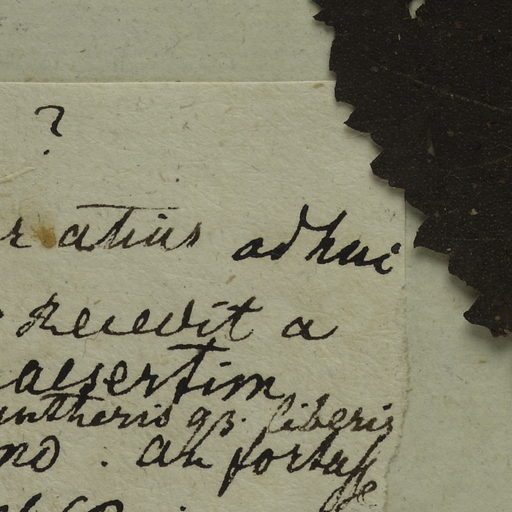 ?
r atius adhuc
Recedit a
aesertim
antheris qz. liberis
no. an fortasse